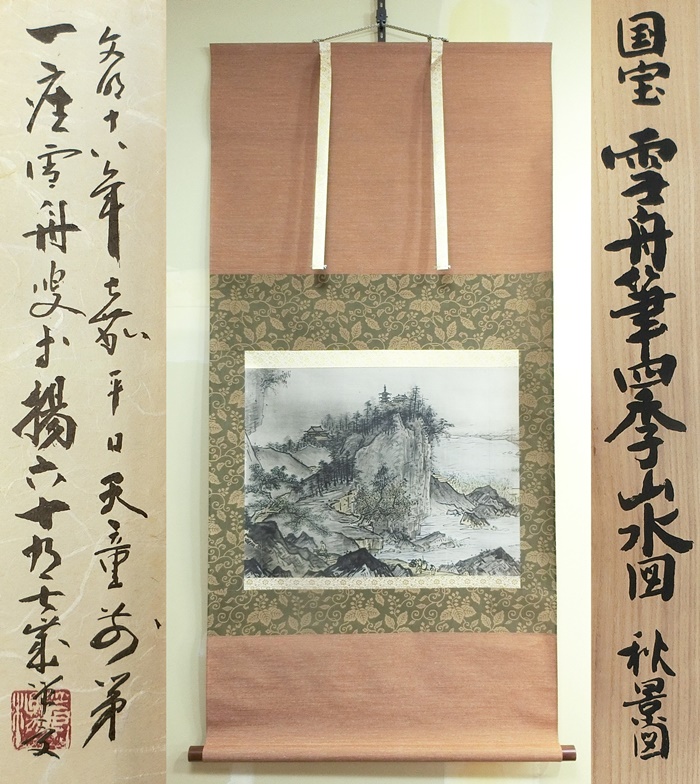 国宝 雪舟筆四季山水図 秋景図
文明十八年嘉平日天童前第
一座雪舟叟等楊六十有七歳筆受